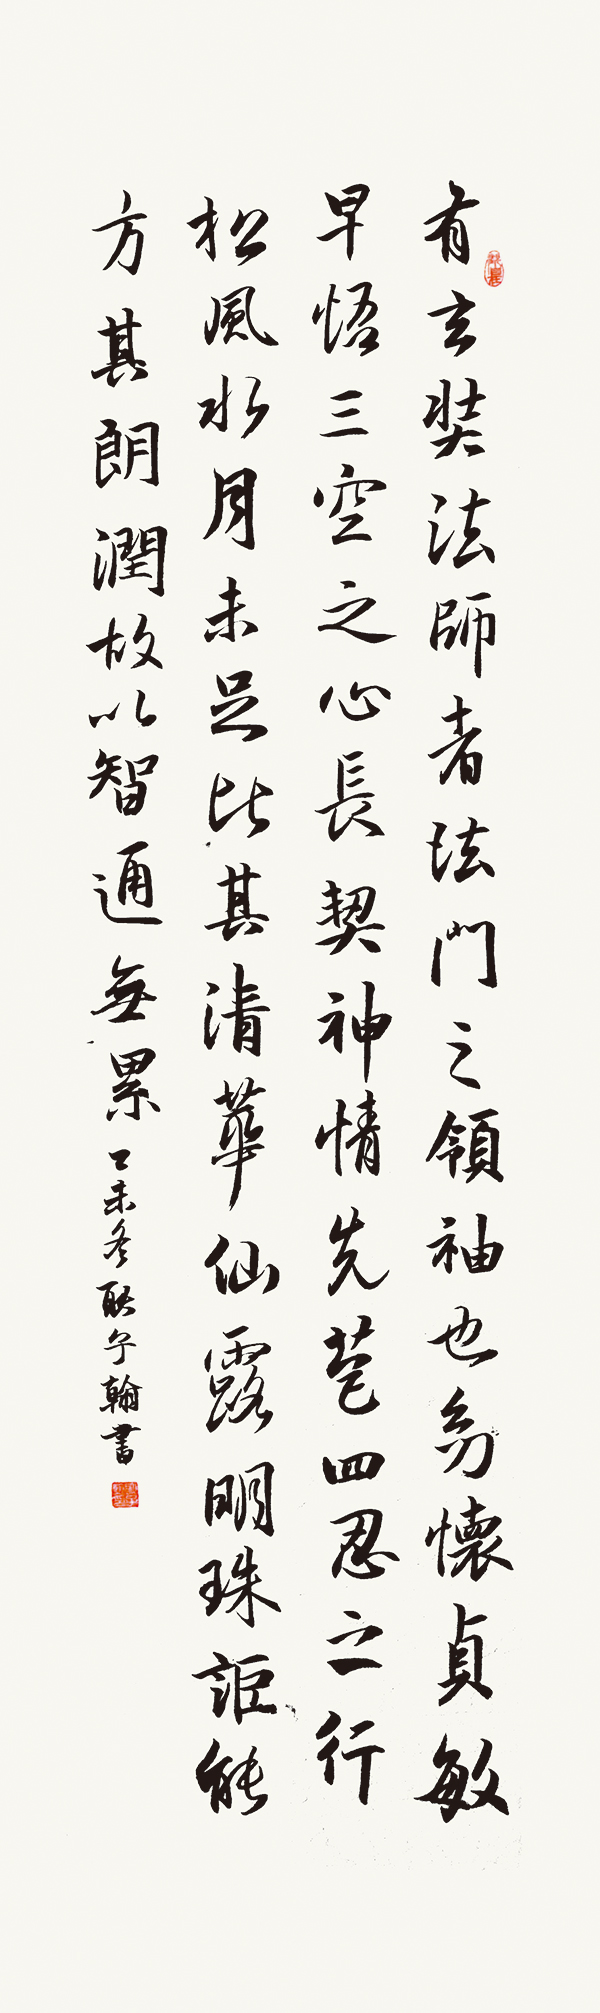 有玄奘法師者法門之領袖也幼懷貞敏
早悟三空之心長契神情先苞四忍之行
松風水月未足比其清華仙露明珠詎能
方其朗潤故以智通無累
未冬耿翰書